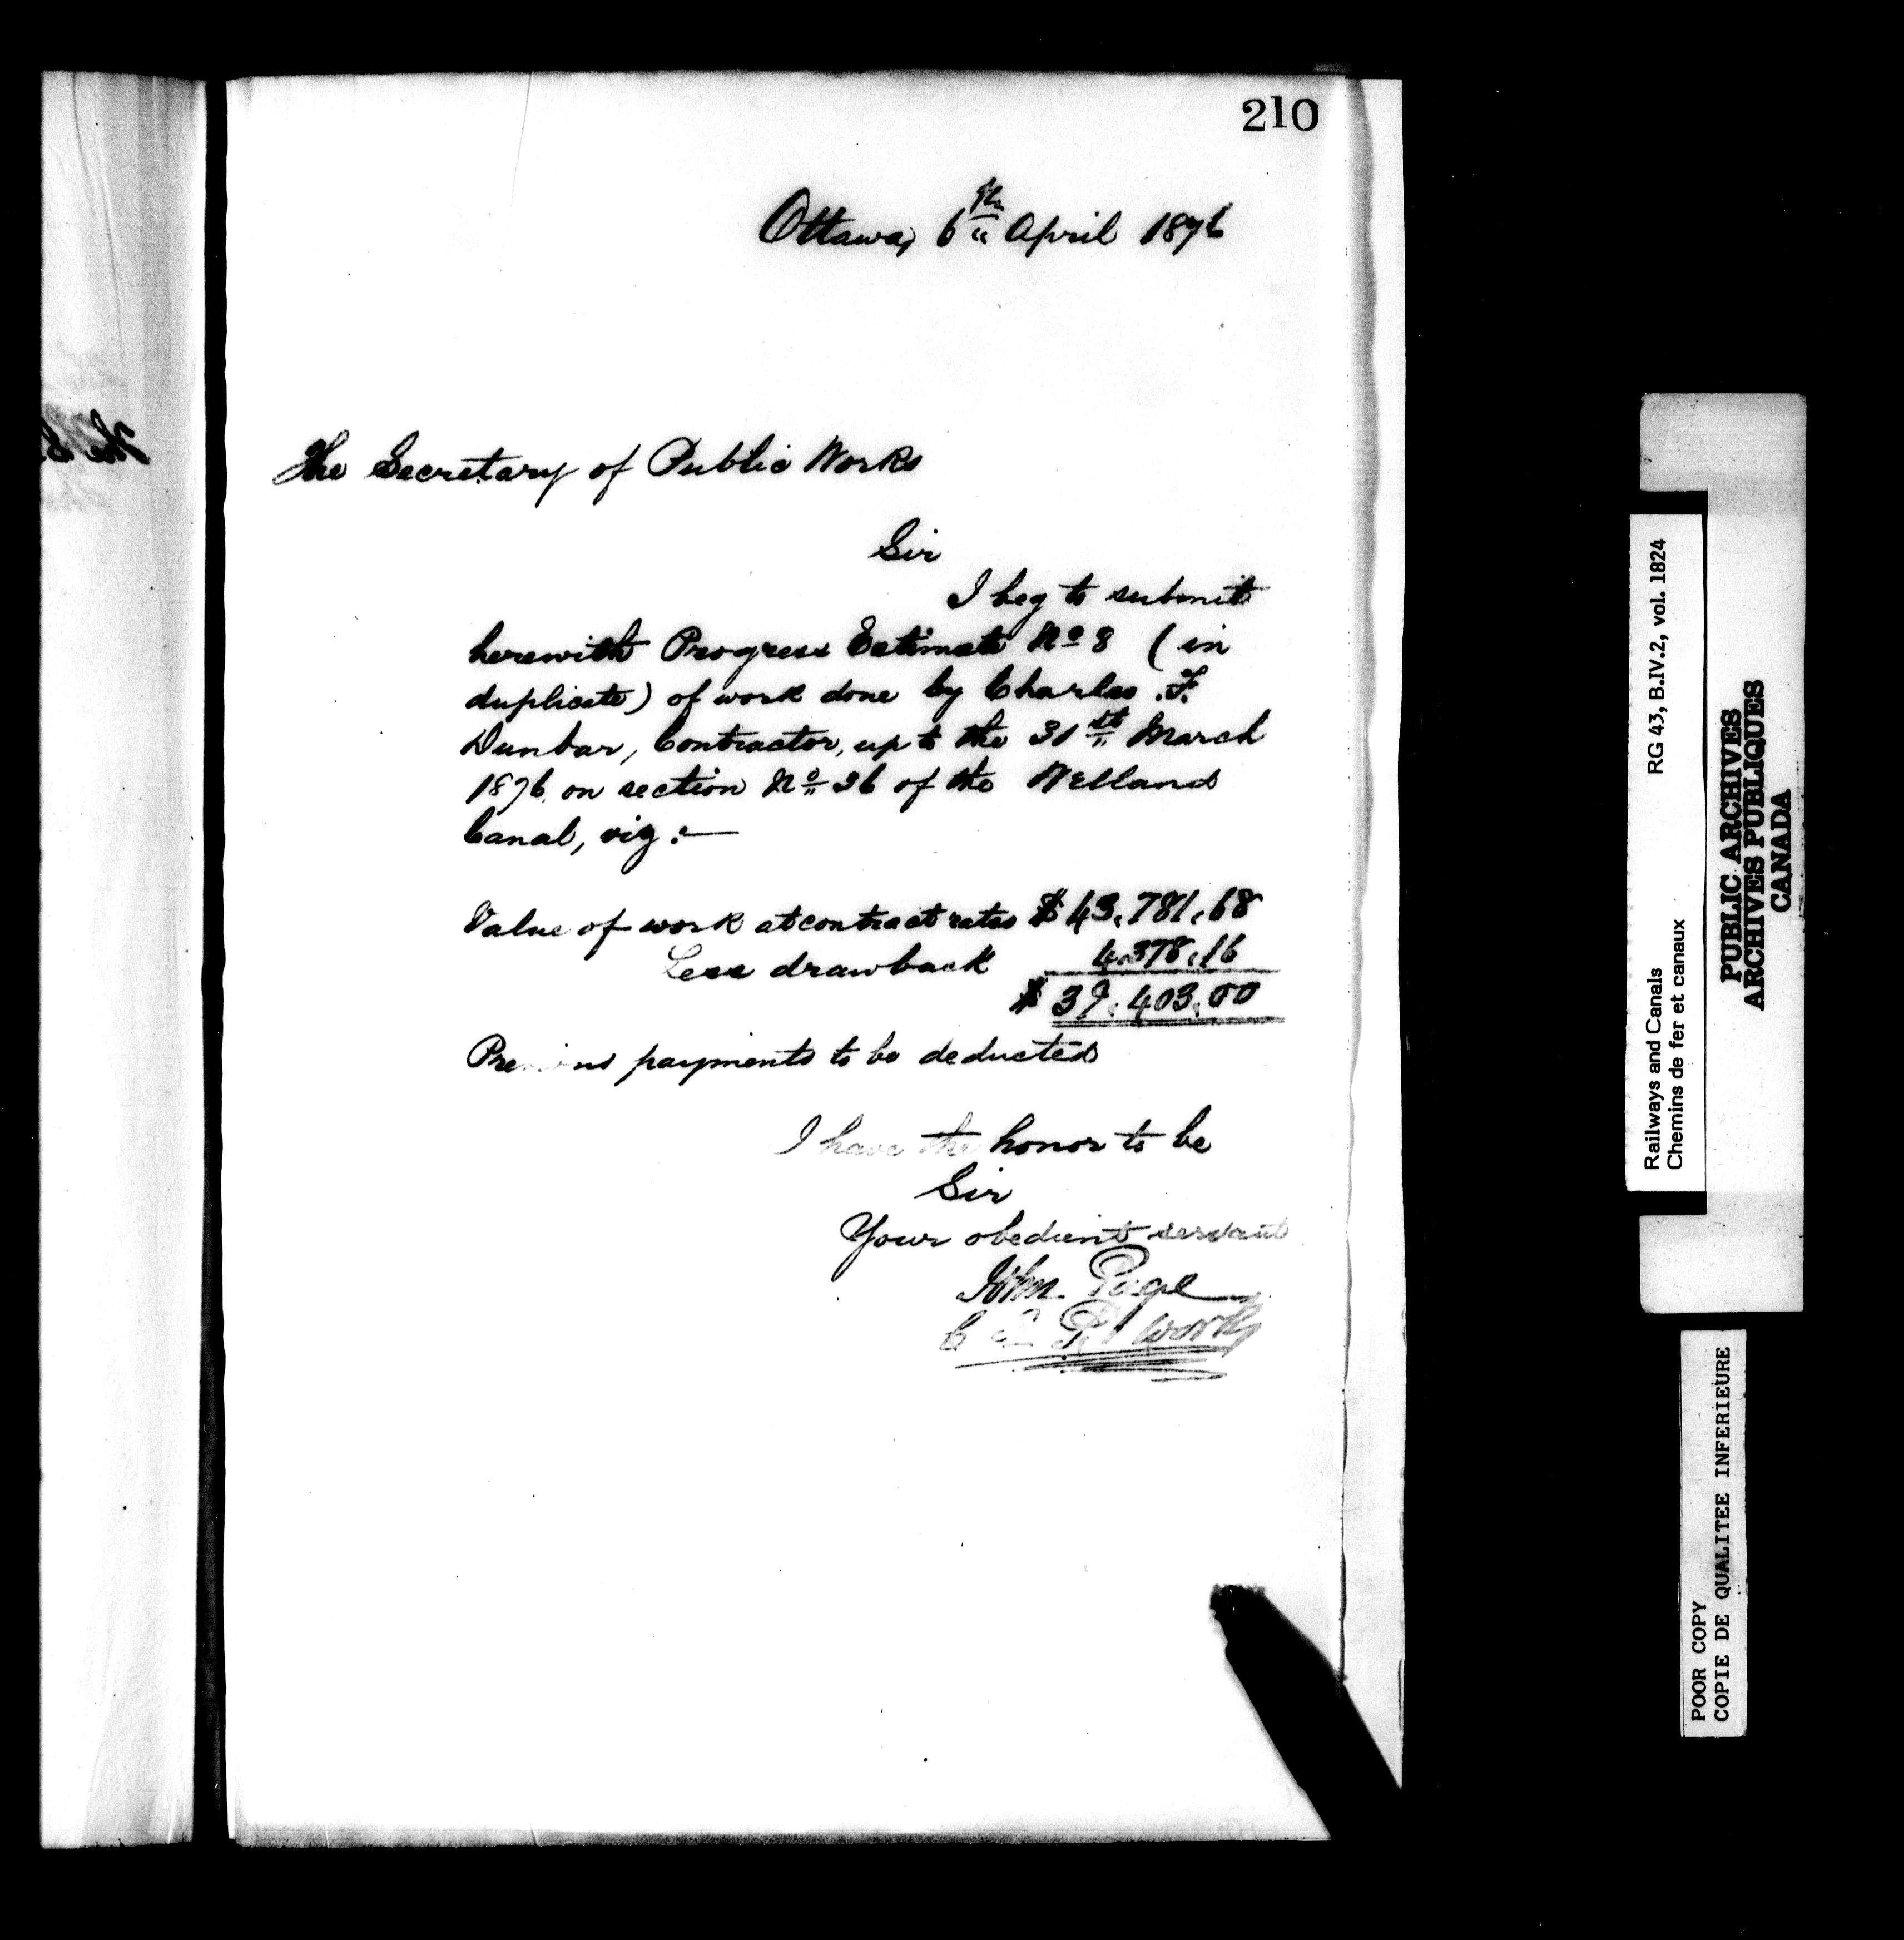 210
Ottawa, 6th April 1876
The Secretary of Public Works
Sir
I beg to submit
herewith Progress Estimate No 8 (in
duplicate) of work done by Charles F.
Dunbar, Contractor, up to the 31st March
1876 on section No 26 of the Welland
Canal, viz:—
Value of work at contract rates $43,781.68
Less drawback 4,378.16
$39,403.00
Previous payments to be deducted
I have the honor to be
Sir
Your obedient servant
John Page
C E P Works
Railways and Canals RG 43, B.IV.2, vol. 1824
Chemins de fer et canaux
PUBLIC ARCHIVES
ARCHIVES PUBLIQUES
CANADA
POOR COPY
COPIE DE QUALITEE INFERIEURE